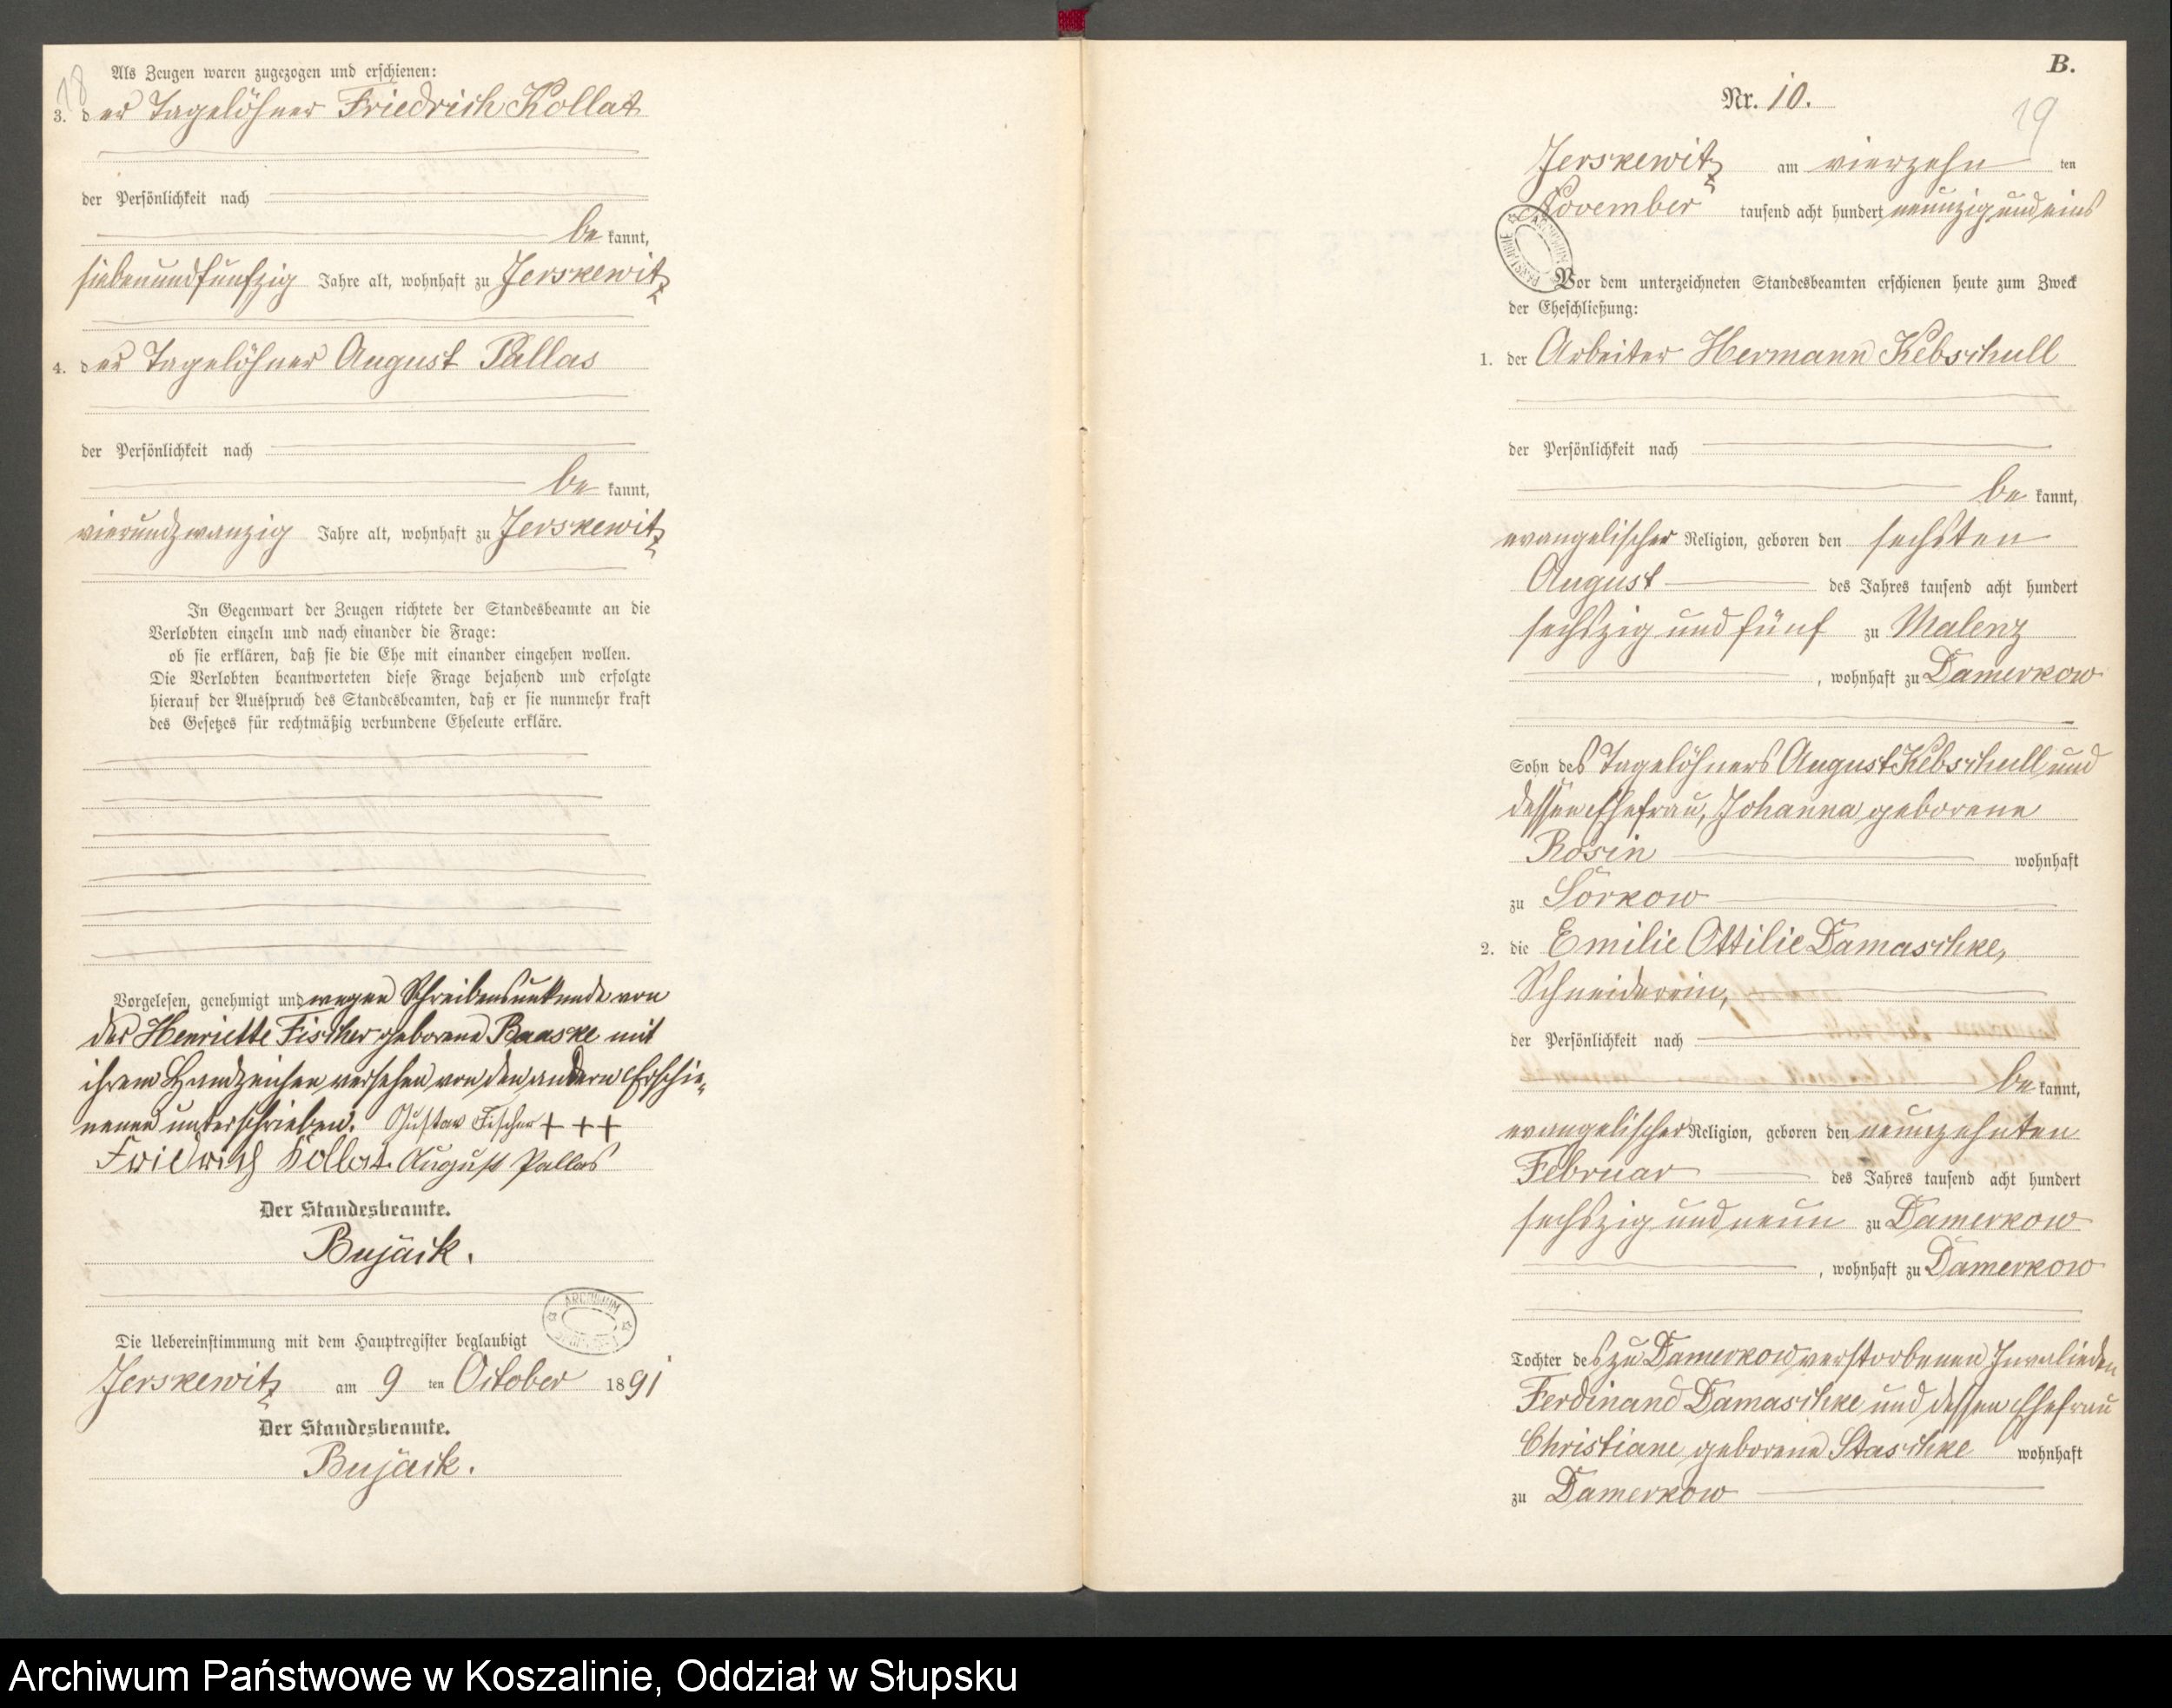 18
Als Zeugen waren zugezogen und erschienen:
3. der Tagelöhner Friedrich Kollat
der Persönlichkeit nach
be kannt,
siebenundfünfzig Jahre alt, wohnhaft zu Jerskewitz
4. der Tagelöhner August Pallas
der Persönlichkeit nach
be kannt,
vierundzwanzig Jahre alt, wohnhaft zu Jerskewitz
In Gegenwart der Zeugen richtete der Standesbeamte an die
Verlobten einzeln und nach einander die Frage:
ob sie erklären, daß sie die Ehe mit einander eingehen wollen.
Die Verlobten beantworteten diese Frage bejahend und erfolgte
hierauf der Ausspruch des Standesbeamten, daß er sie nunmehr kraft
des Gesetzes für rechtmäßig verbundene Eheleute erkläre.
Vorgelesen, genehmigt und wegen Schreibensunkunde von
der Henriette Fischer geborene Baaske mit
ihrem Handzeichen versehen, von den andern Erschie-
nenen unterschrieben. Gustav Fischer +++
Friedrich Kollat. August Pallas
Der Standesbeamte.
Bujäck.
Die Uebereinstimmung mit dem Hauptregister beglaubigt
Jerskewitz am 9 ten October 1891
Der Standesbeamte.
Bujäck.
B.
Nr. 10.
19
Jerskewitz am vierzehn ten
November tausend acht hundert neunzig und eins
Vor dem unterzeichneten Standesbeamten erschienen heute zum Zweck
der Eheschließung:
1. der Arbeiter Hermann Kebschull
der Persönlichkeit nach
be kannt,
evangelischer Religion, geboren den sechsten
August des Jahres tausend acht hundert
sechszig und fünf zu Malenz
, wohnhaft zu Damerkow
Sohn des Tagelöhners August Kebschull und
dessen Ehefrau, Johanna geborene
Rosin wohnhaft
zu Sorkow
2. die Emilie Ottilie Damaschke,
Schneiderrin,
der Persönlichkeit nach
be kannt,
evangelischer Religion, geboren den neunzehnten
Februar des Jahres tausend acht hundert
sechszig und neun zu Damerkow
, wohnhaft zu Damerkow
Tochter des zu Damerkow verstorbenen Invalieden
Ferdinand Damaschke und dessen Ehefrau
Christiane geborene Staschke wohnhaft
zu Damerkow
Archiwum Państwowe w Koszalinie, Oddział w Słupsku